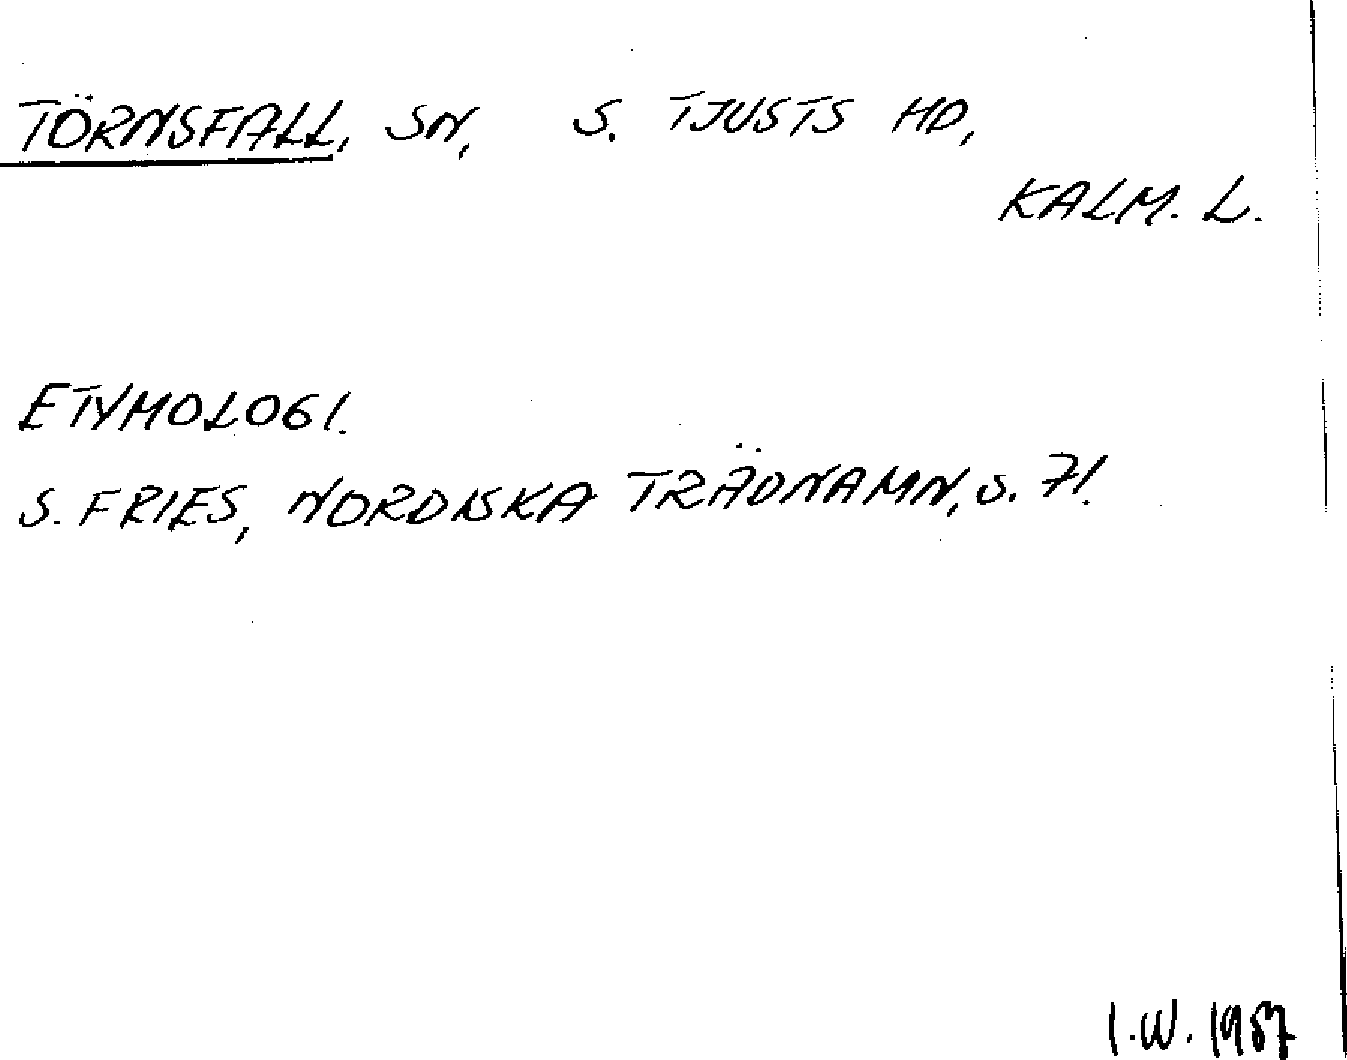 TÖRNSFALL, SN, S. TJUSTS HD,
KALM. L.
ETYMOLOGI.
S. FRIES, NORDISKA TRÄDNAMN, S. 71.
I.W. 1987